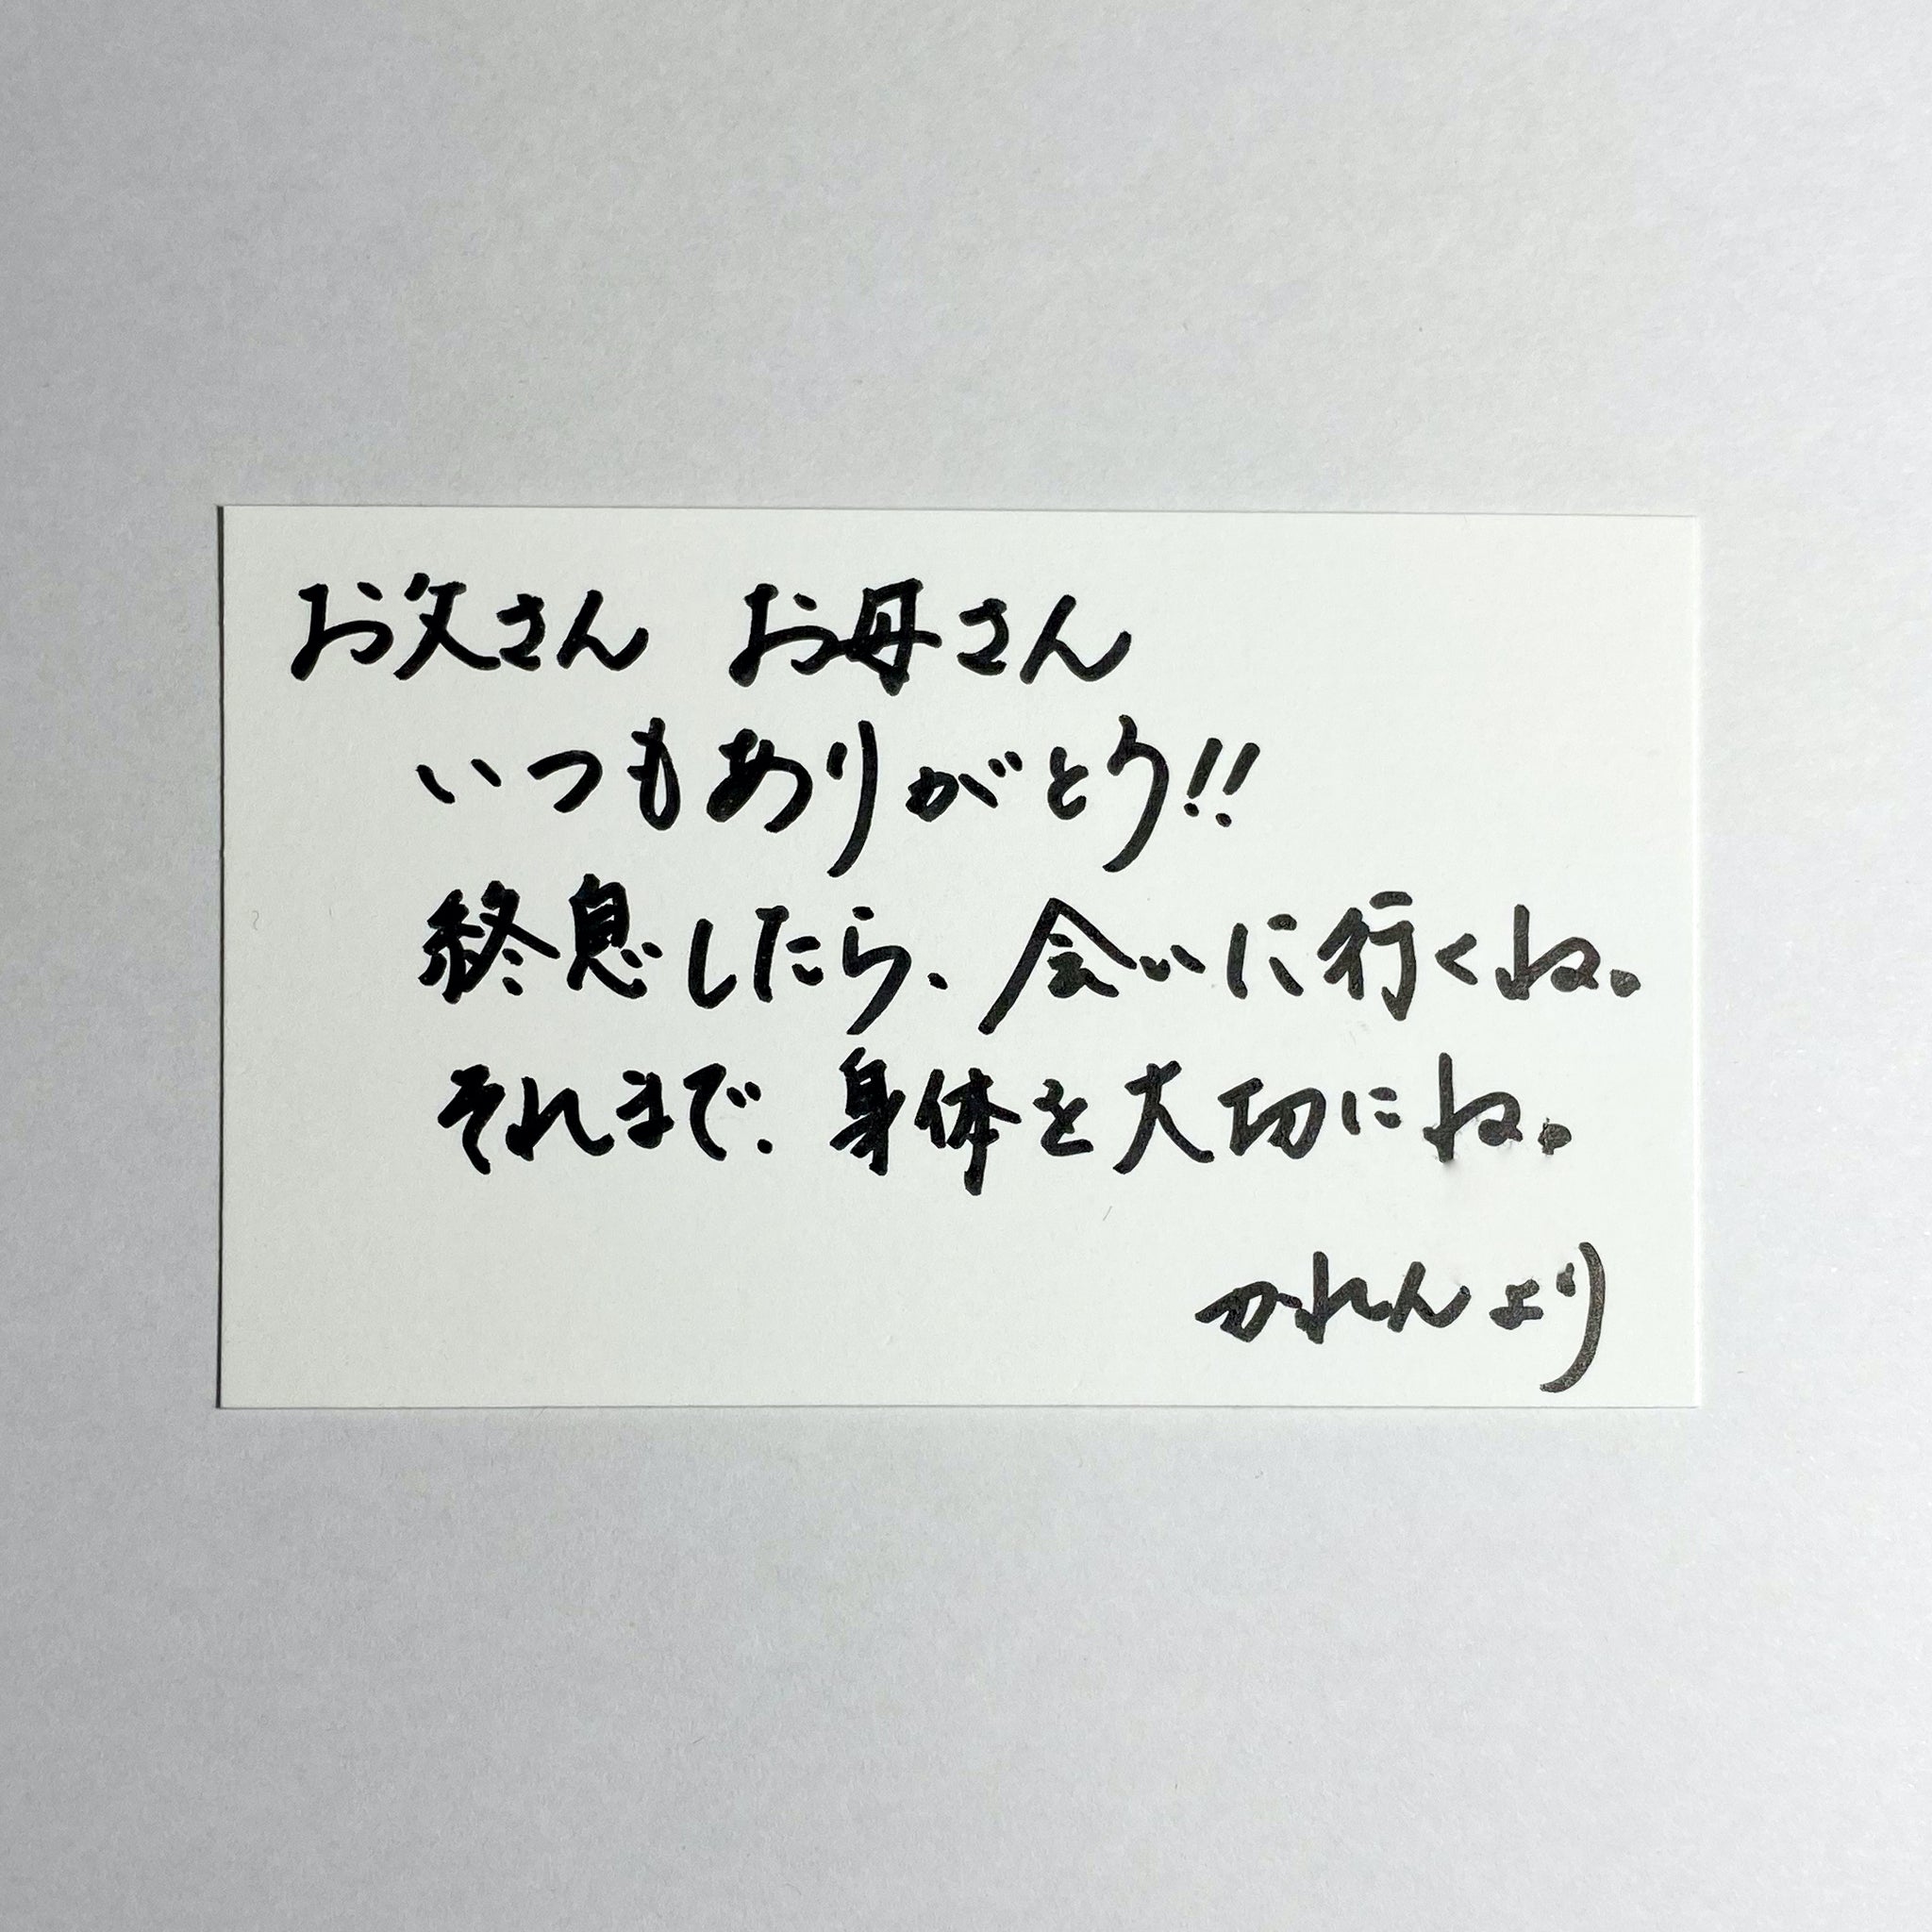 お父さん　お母さん
いつもありがとう!!
終息したら、会いに行くね。
それまで、身体を大切にね。
かれんより